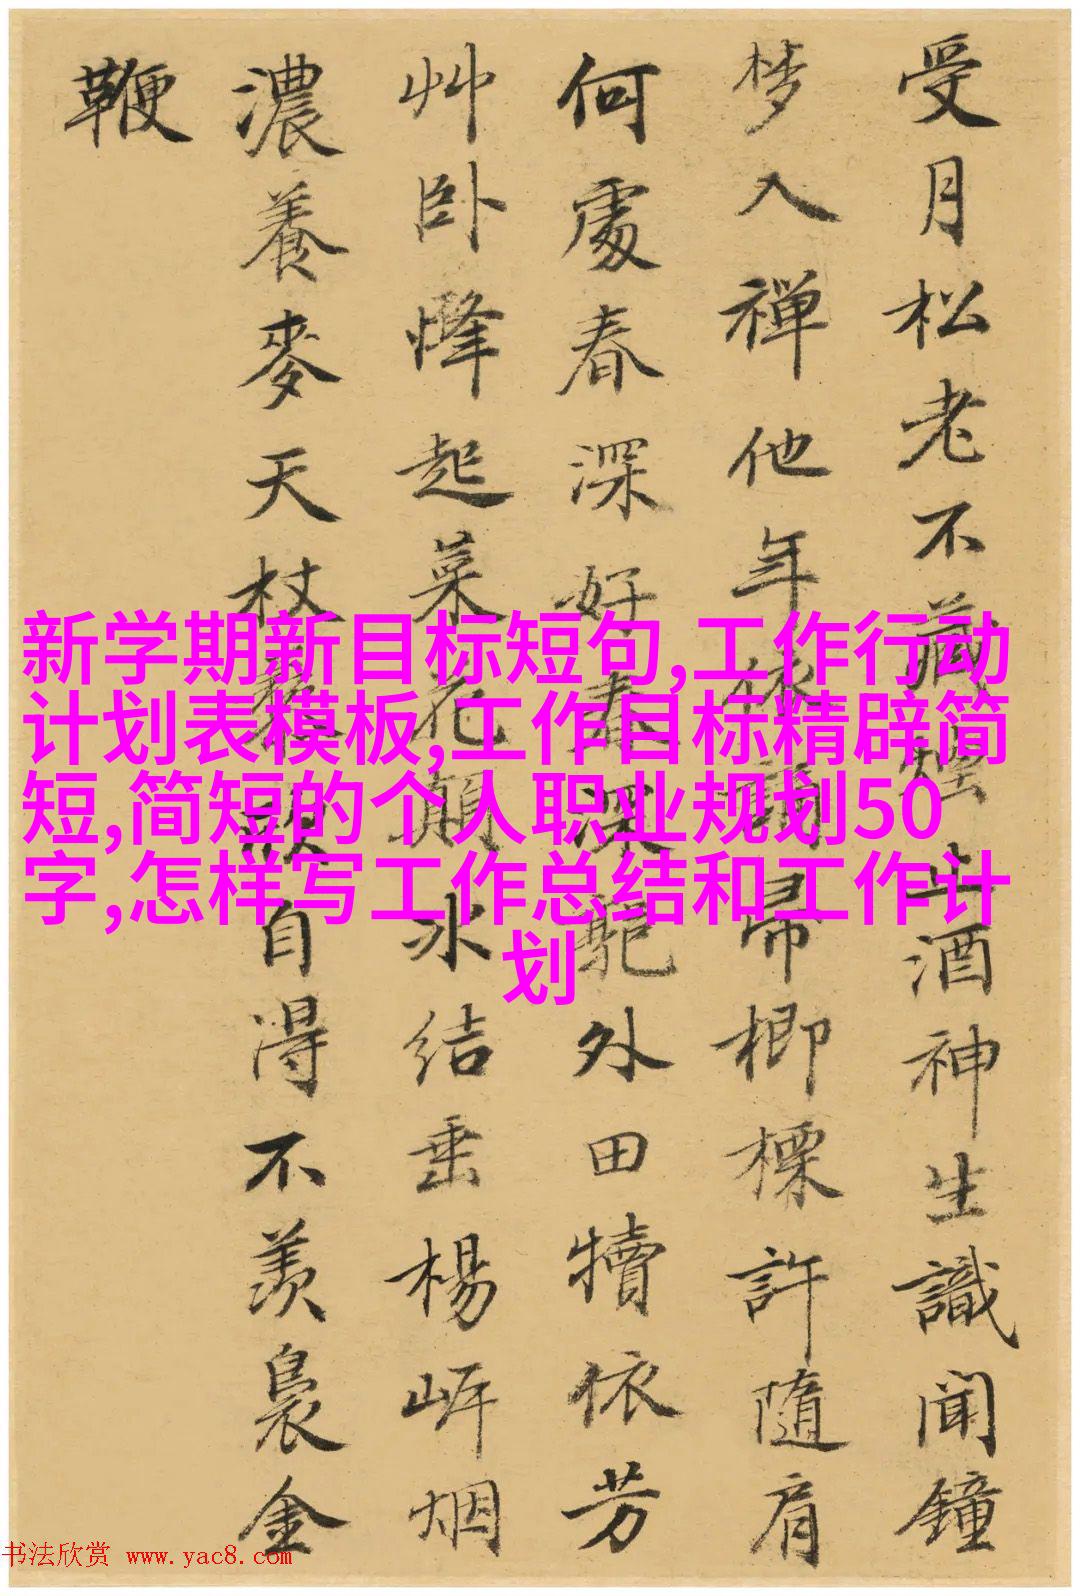 受月松老不藏烟山酒神生識闻鐘
梦入禅他年 歸榔標許隨肩
何處春深好春深駝外田犢依芳
艸卧慵起菜花顛水结垂楊岸烟
濃養麥天杖 自得不羡裊金
鞭
新学期新目标短句,工作行动
计划表模板,工作目标精辟简
短,简短的个人职业规划50
字,怎样写工作总结和工作计
划
书法欣赏 www.yac8.com